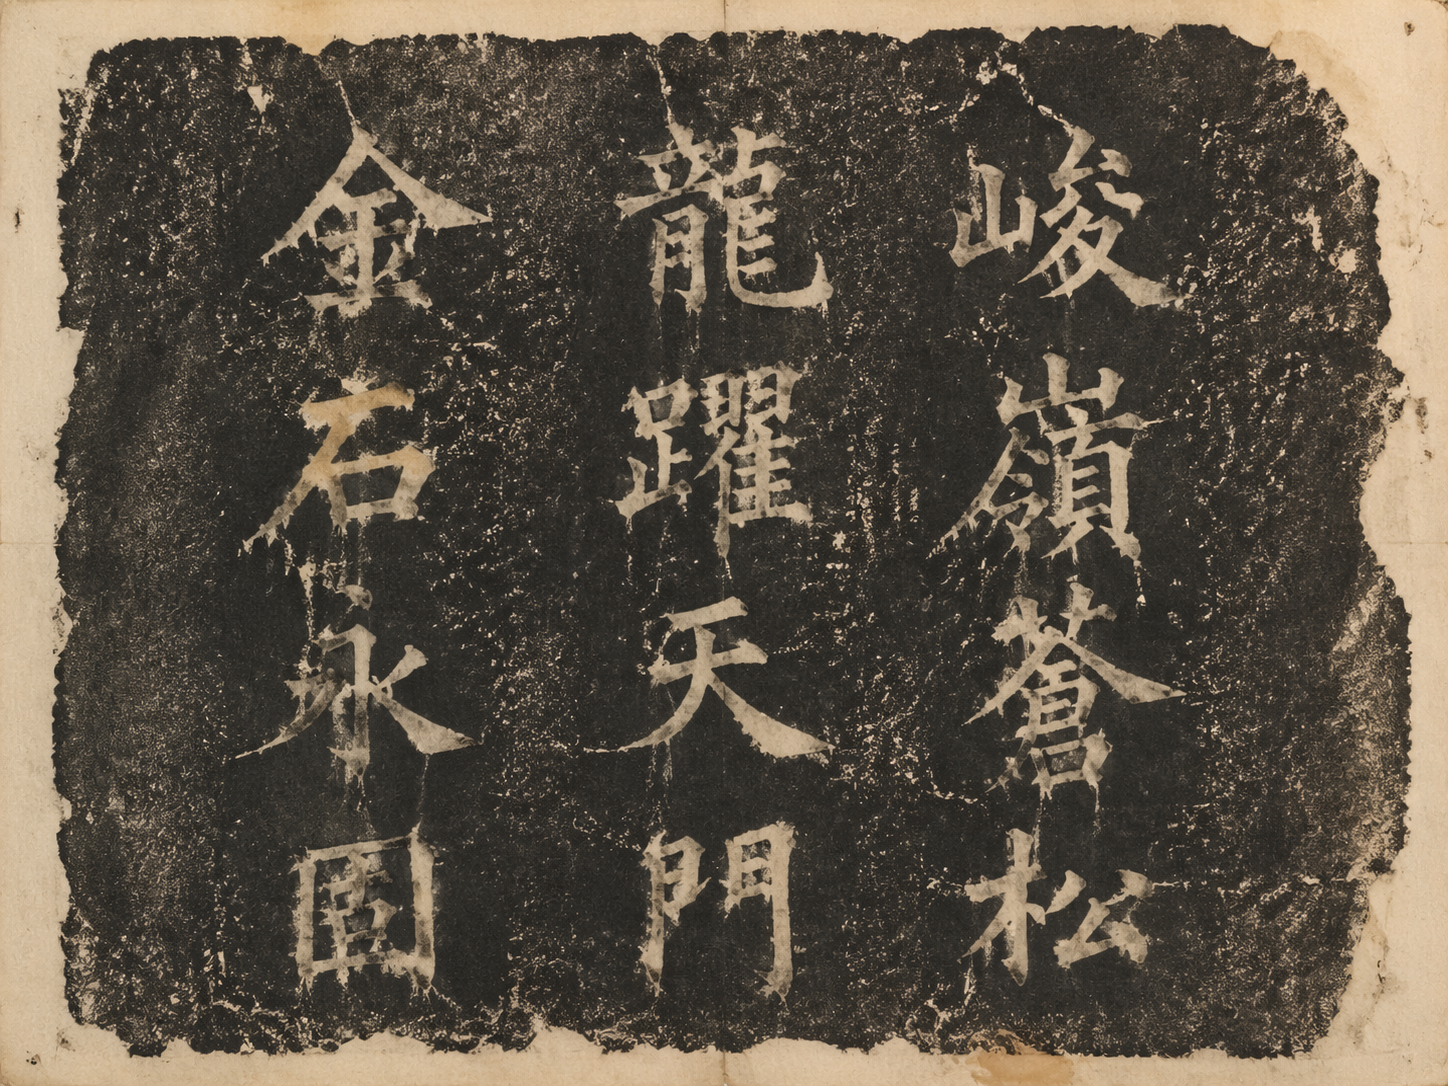 峻嶺蒼松
龍躍天門
金石永固